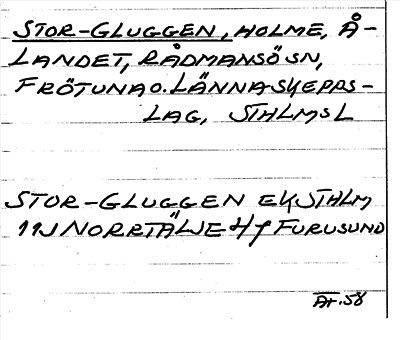 STOR-GLUGGEN, HOLME, Å-
LANDET, RÅDMANSÖ SN,
FRÖTUNA O. LÄNNA SKEPPS-
LAG, STHLMS L
STOR-GLUGGEN EK STHLM
11J NORRTÄLJE Hf FURUSUND
Ar. 58